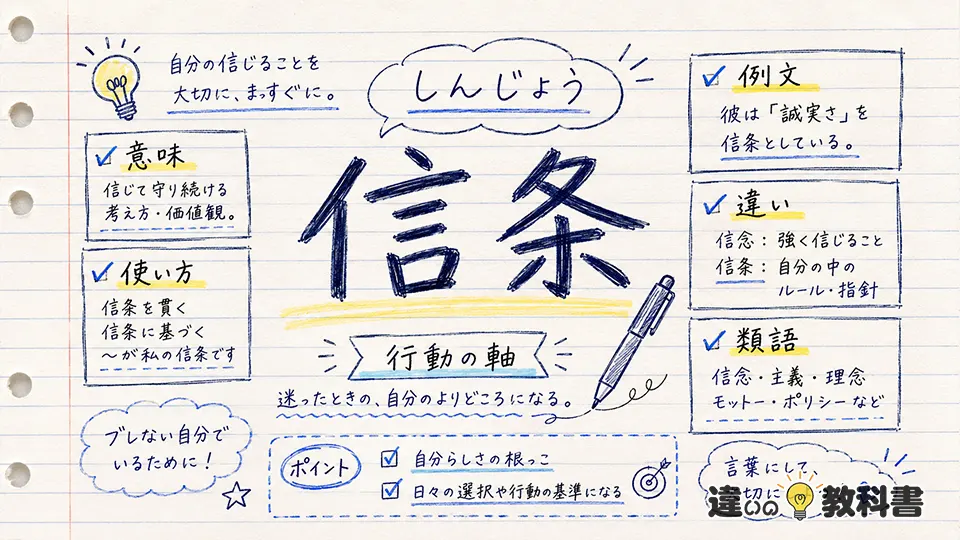 自分の信じることを
大切に、まっすぐに。
しんじょう
信条
行動の軸
迷ったときの、自分のよりどころになる。
意味
信じて守り続ける
考え方・価値観。
使い方
信条を貫く
信条に基づく
〜が私の信条です
ブレない自分で
いるために！
ポイント
自分らしさの根っこ
日々の選択や行動の基準になる
例文
彼は「誠実さ」を
信条としている。
違い
信念：強く信じること
信条：自分の中の
ルール・指針
類語
信念・主義・理念
モットー・ポリシーなど
言葉にして、
切に
違いの教科書